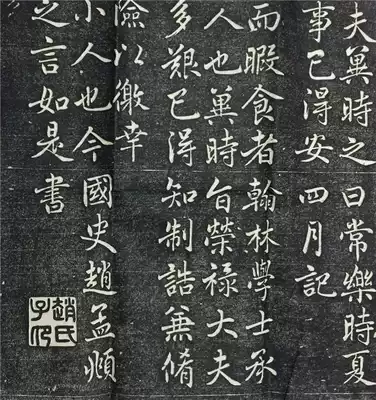 夫冀時之日常樂時夏
事已得安四月記
而暇食者翰林學士承
人也冀時旨榮祿大夫
多艱已得知制誥兼脩
險以徼幸
小人也今國史趙孟頫
之言如是書
趙氏子昂